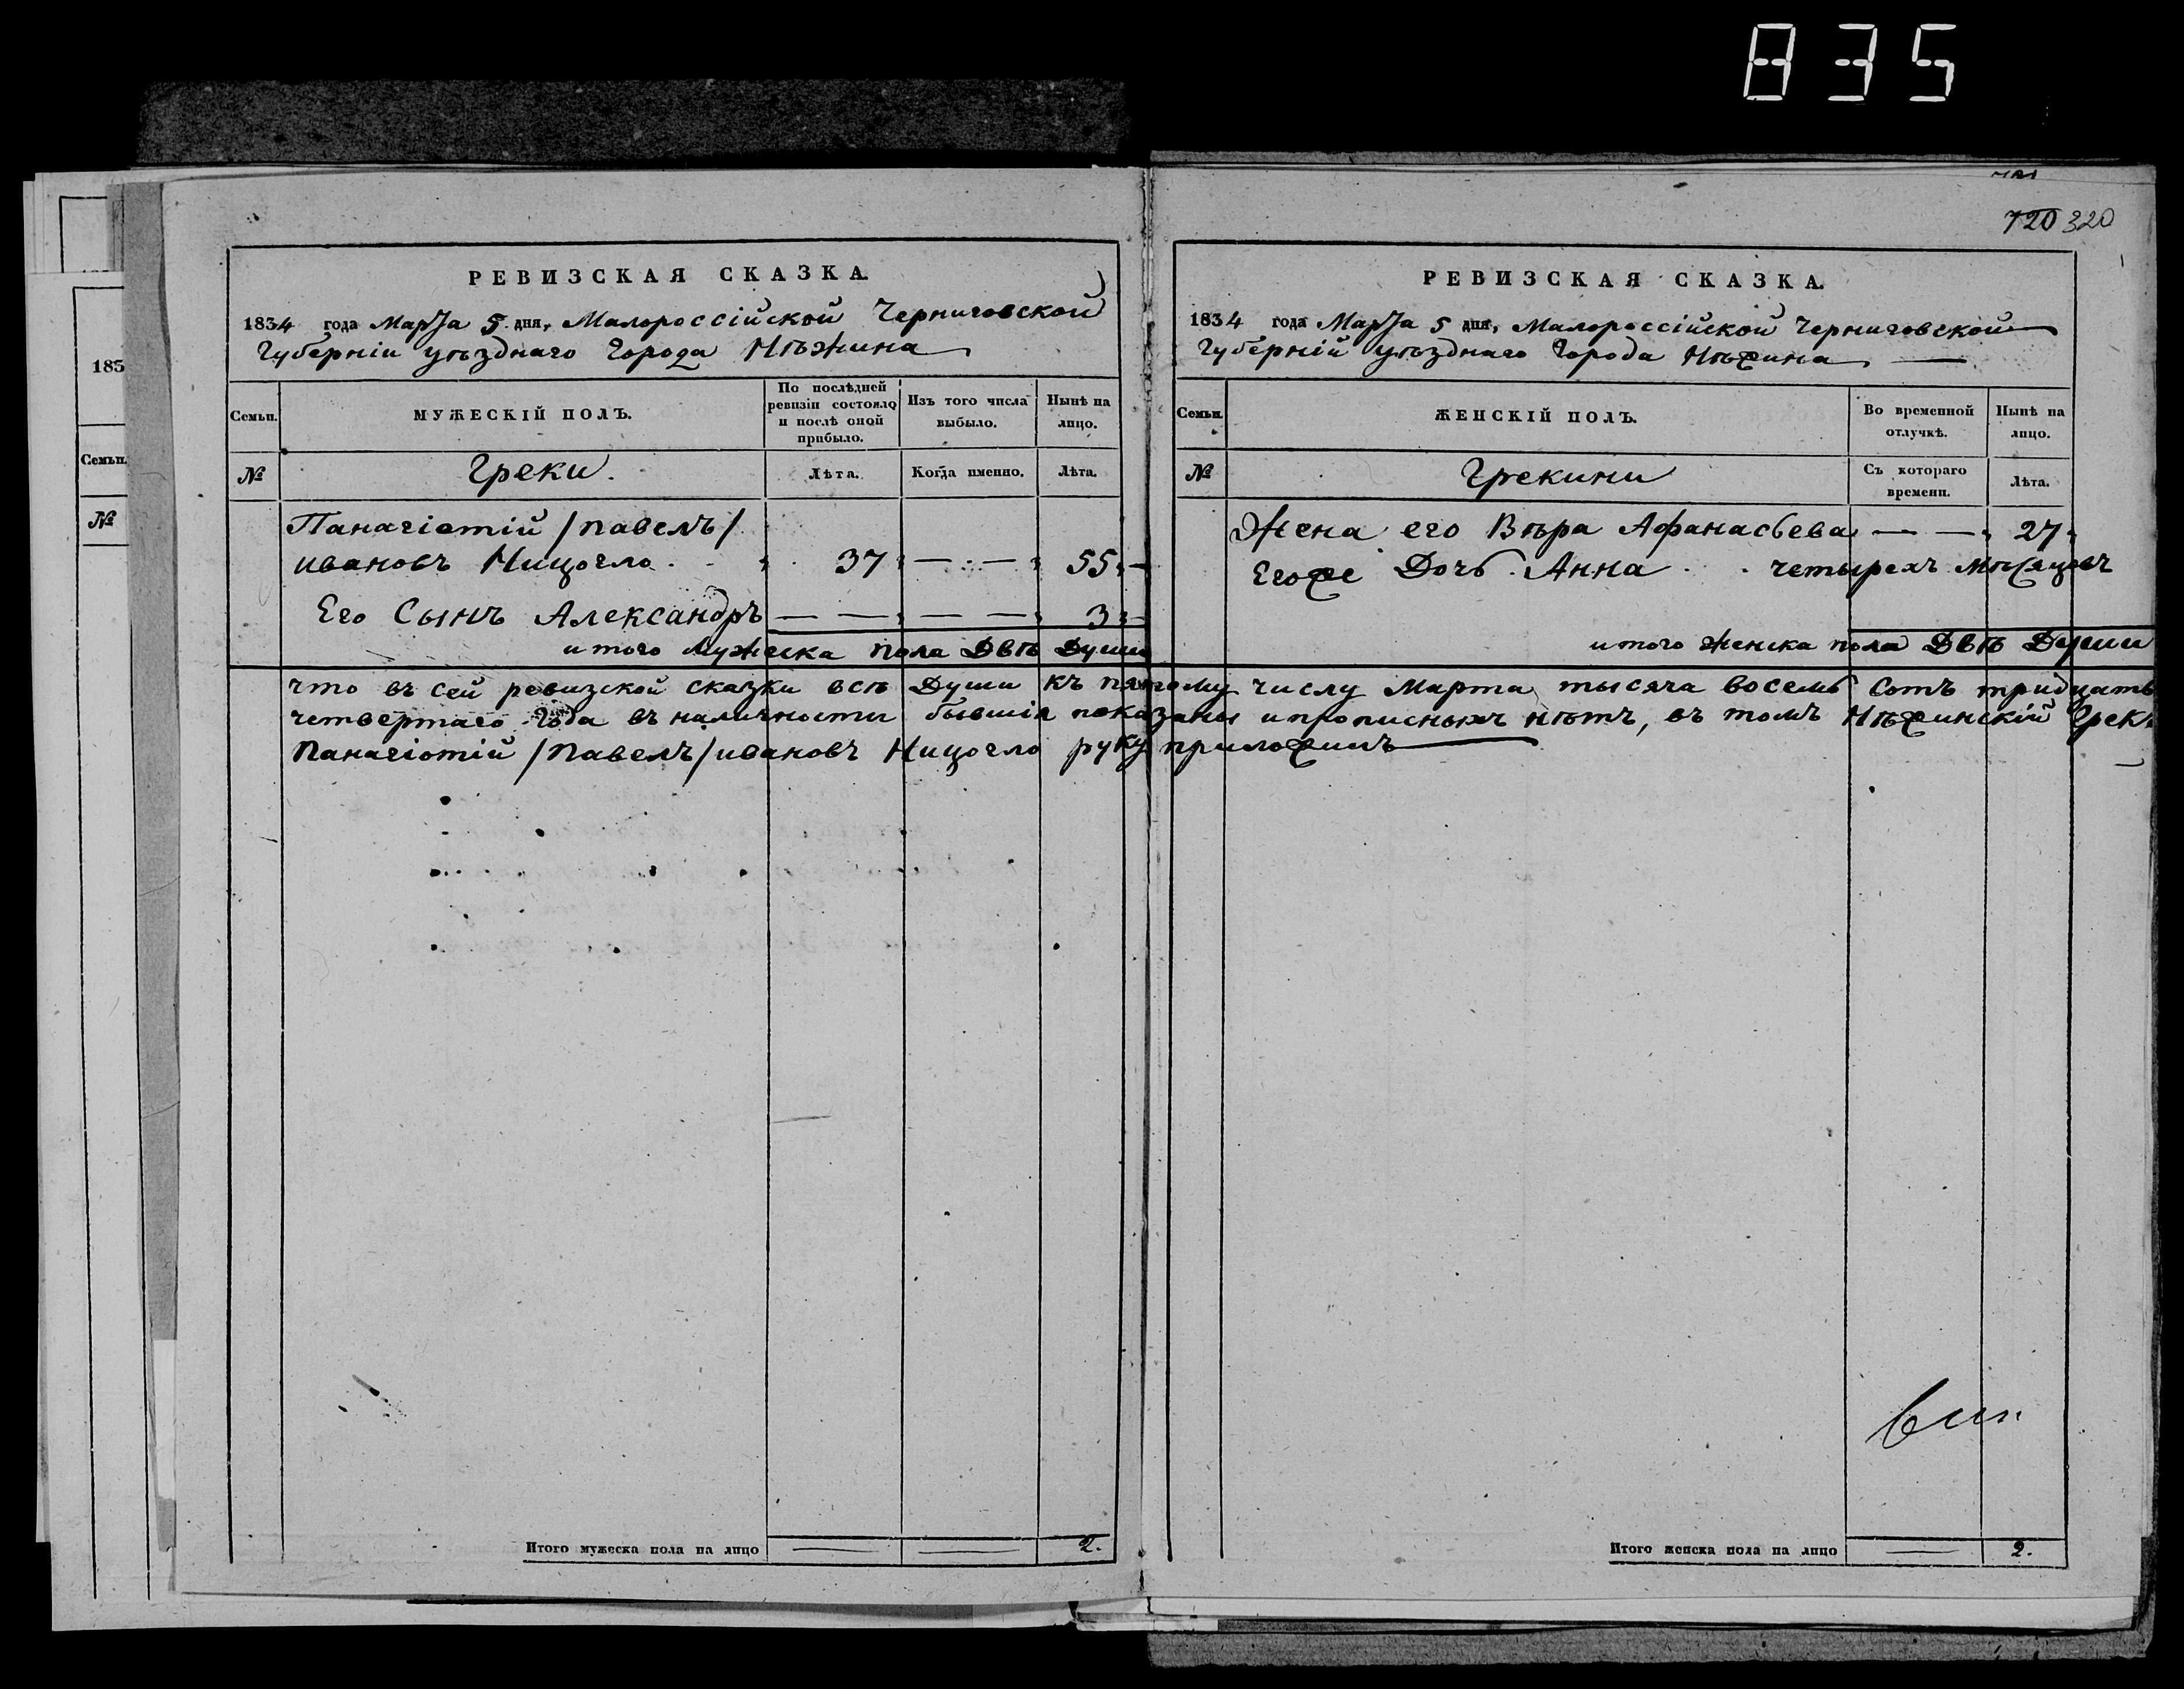 835
720 320
РЕВИЗСКАЯ СКАЗКА.
1834 года Марта 5 дня, Малороссійской Черниговской
Губерніи уѣзднаго Города Нѣжина
Семьи.
МУЖЕСКІЙ ПОЛЪ.
По послѣдней ревизіи состояло и послѣ оной прибыло.
Изъ того числа выбыло.
Нынѣ на лицо.
№
Греки.
Лѣта.
Когда именно.
Лѣта.
Панагіотій /павелъ/
ивановъ Ницогло 37 — — 55
Его Сынъ Александръ — — — — 3
итого мужеска пола Двѣ Души
РЕВИЗСКАЯ СКАЗКА.
1834 года Марта 5 дня, Малороссійской Черниговской
Губерній уѣзднаго Города Нѣжина
Семьи.
ЖЕНСКІЙ ПОЛЪ.
Во временной отлучкѣ.
Нынѣ на лицо.
№
Грекини
Съ котораго времени.
Лѣта.
Жена его Вѣра Афанасьева — — 27
Егоже Дочь Анна четырехъ мѣсяцовъ
итого женска пола Двѣ Души
что въ сей ревизской сказки всѣ Души къ пятому числу Марта тысяча восемь сотъ тридцать
четвертаго года въ наличности бывшія показаны ипрописныхъ нѣтъ, въ томъ Нѣжинскій Грекъ
Панагіотій /Павелъ/ ивановъ Ницогло руку приложилъ
Итого мужеска пола на лицо 2.
Итого женска пола на лицо 2.
183
Семьи.
№